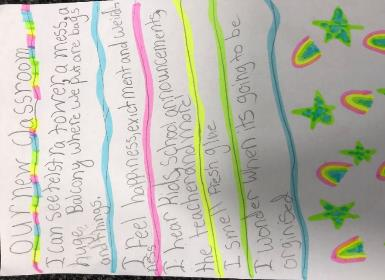 our new classroom
I can see teistra tower, a mess, a
huge, Balcony where we put are bags
and things.
I feel happiness, exictment and weidt
ness
I hear kids, school announcements,
the teacher and more
I smell fresh give
I wonder when its going to be
orginised